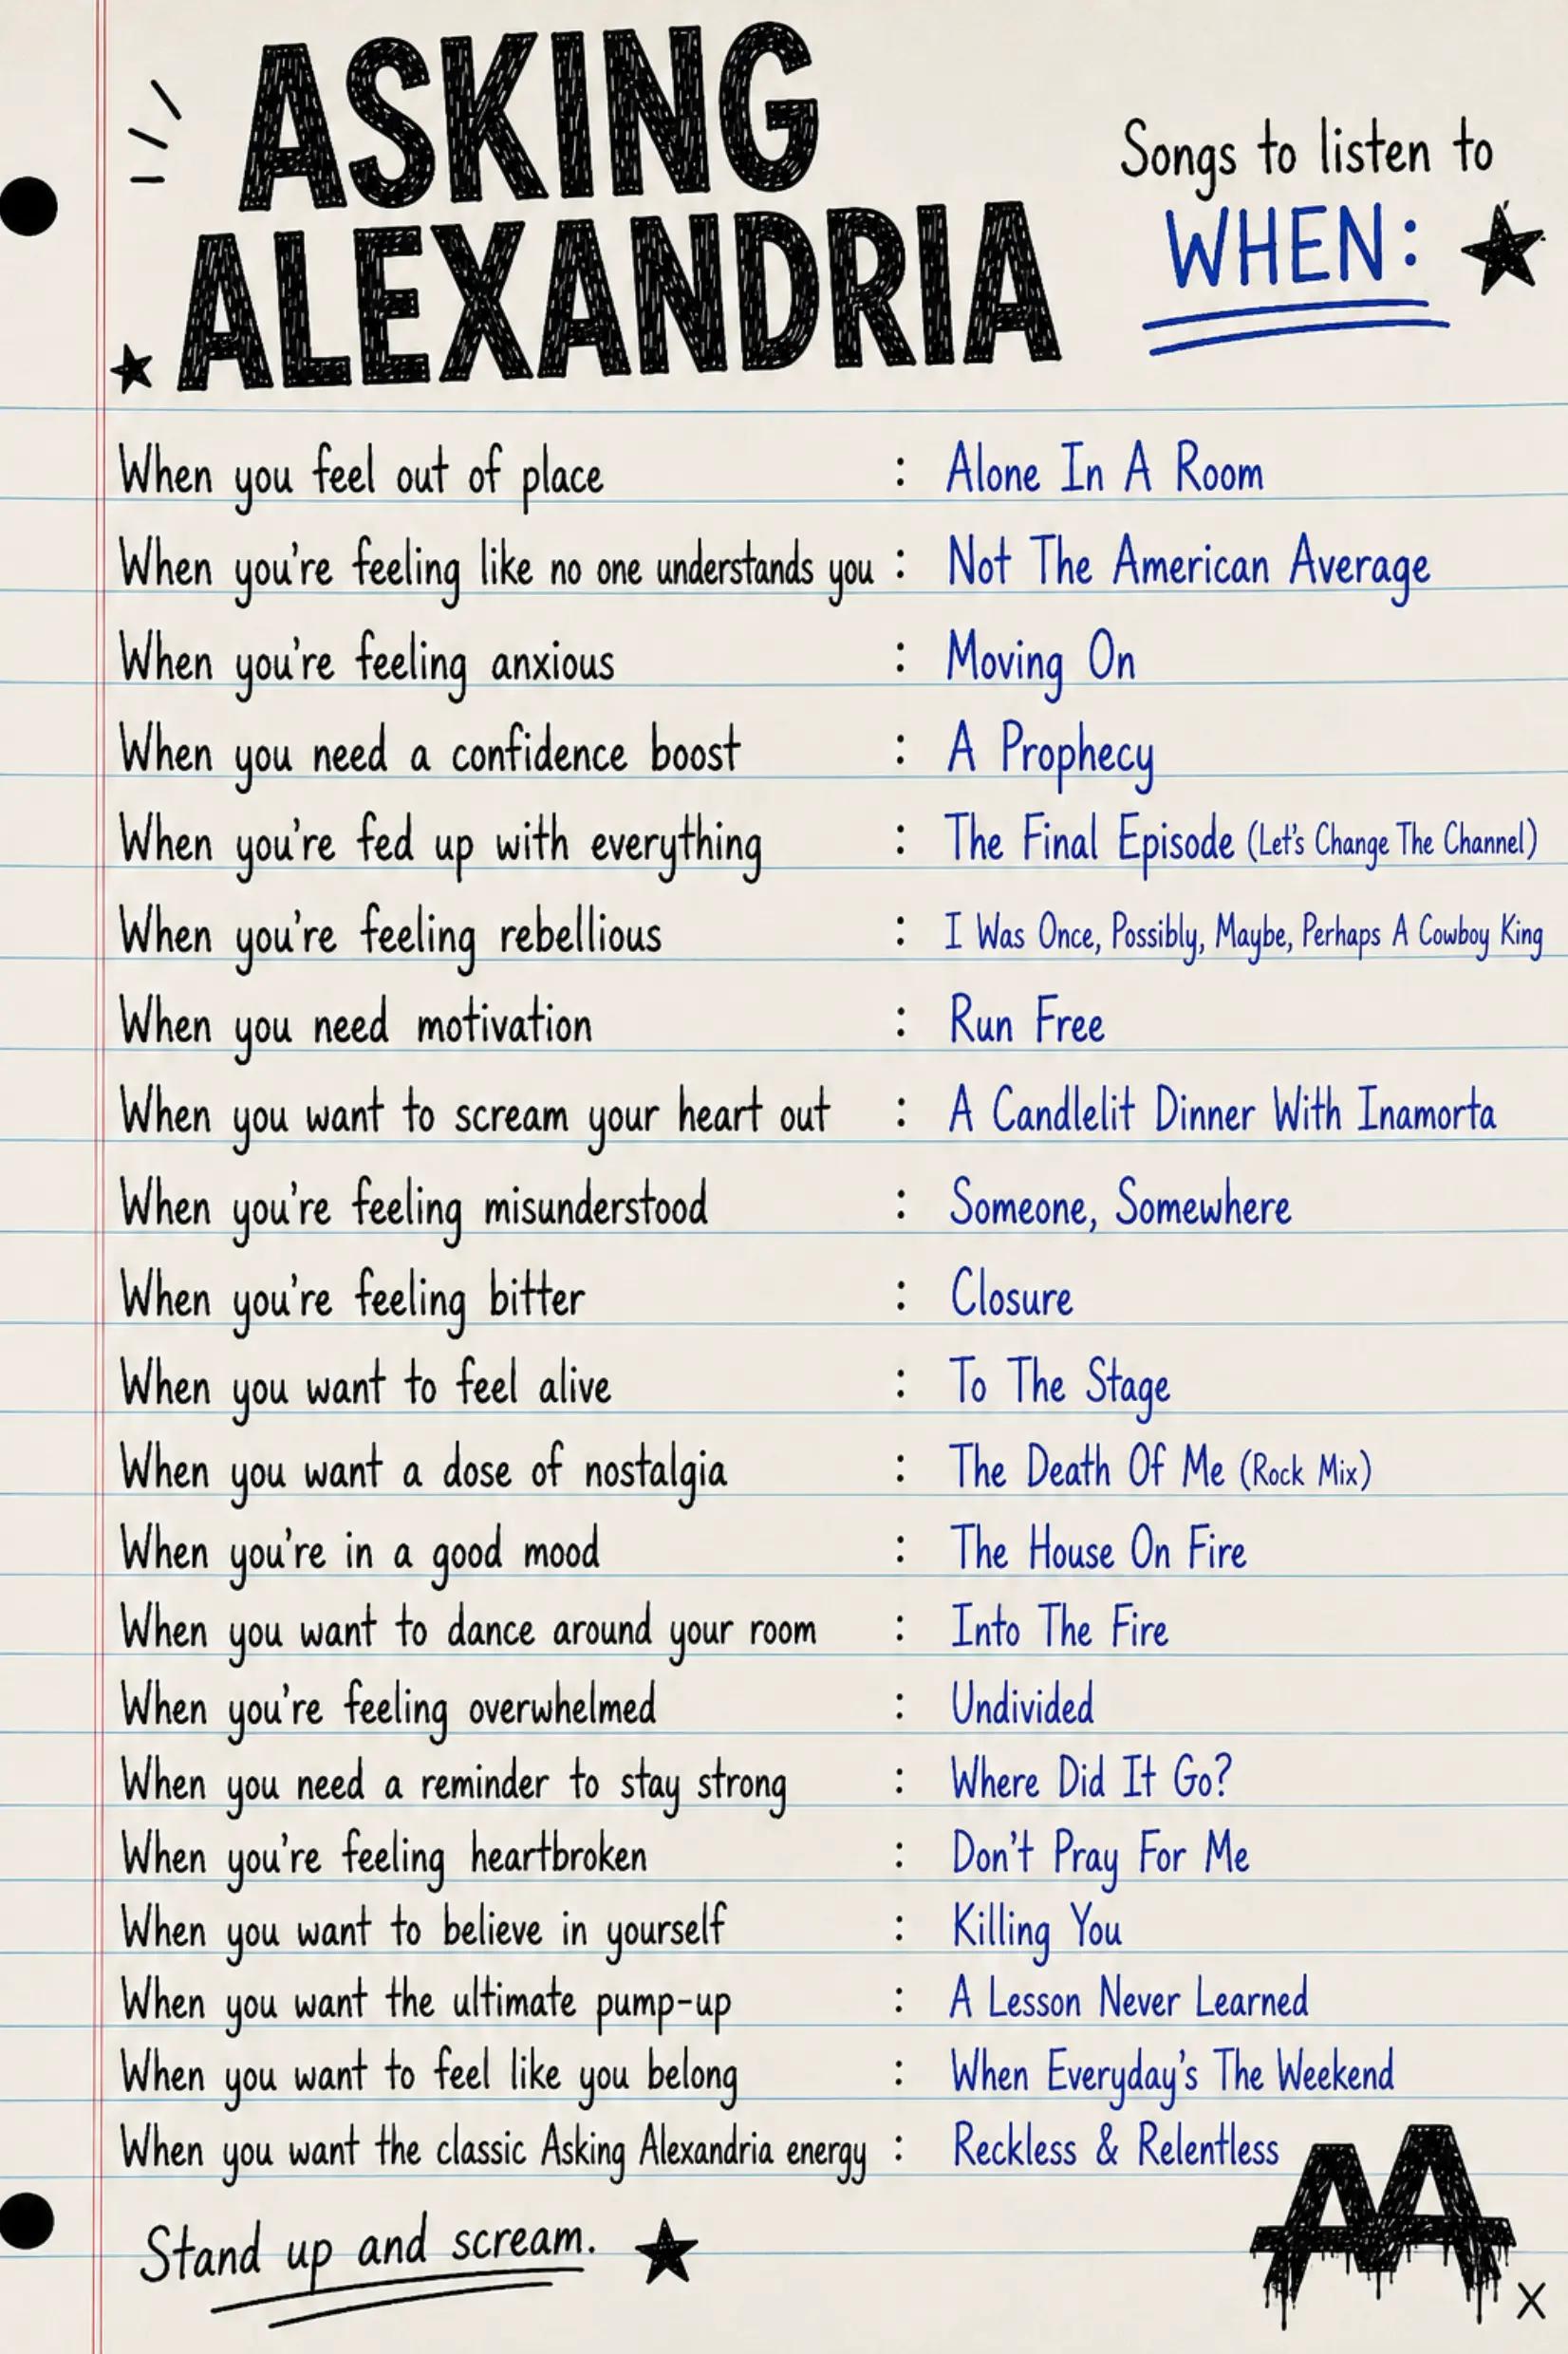 ASKING
ALEXANDRIA
Songs to listen to
WHEN:
When you feel out of place : Alone In A Room
When you're feeling like no one understands you : Not The American Average
When you're feeling anxious : Moving On
When you need a confidence boost : A Prophecy
When you're fed up with everything : The Final Episode (Let's Change The Channel)
When you're feeling rebellious : I Was Once, Possibly, Maybe, Perhaps A Cowboy King
When you need motivation : Run Free
When you want to scream your heart out : A Candlelit Dinner With Inamorta
When you're feeling misunderstood : Someone, Somewhere
When you're feeling bitter : Closure
When you want to feel alive : To The Stage
When you want a dose of nostalgia : The Death Of Me (Rock Mix)
When you're in a good mood : The House On Fire
When you want to dance around your room : Into The Fire
When you're feeling overwhelmed : Undivided
When you need a reminder to stay strong : Where Did It Go?
When you're feeling heartbroken : Don't Pray For Me
When you want to believe in yourself : Killing You
When you want the ultimate pump-up : A Lesson Never Learned
When you want to feel like you belong : When Everyday's The Weekend
When you want the classic Asking Alexandria energy : Reckless & Relentless
Stand up and scream.
AA
x